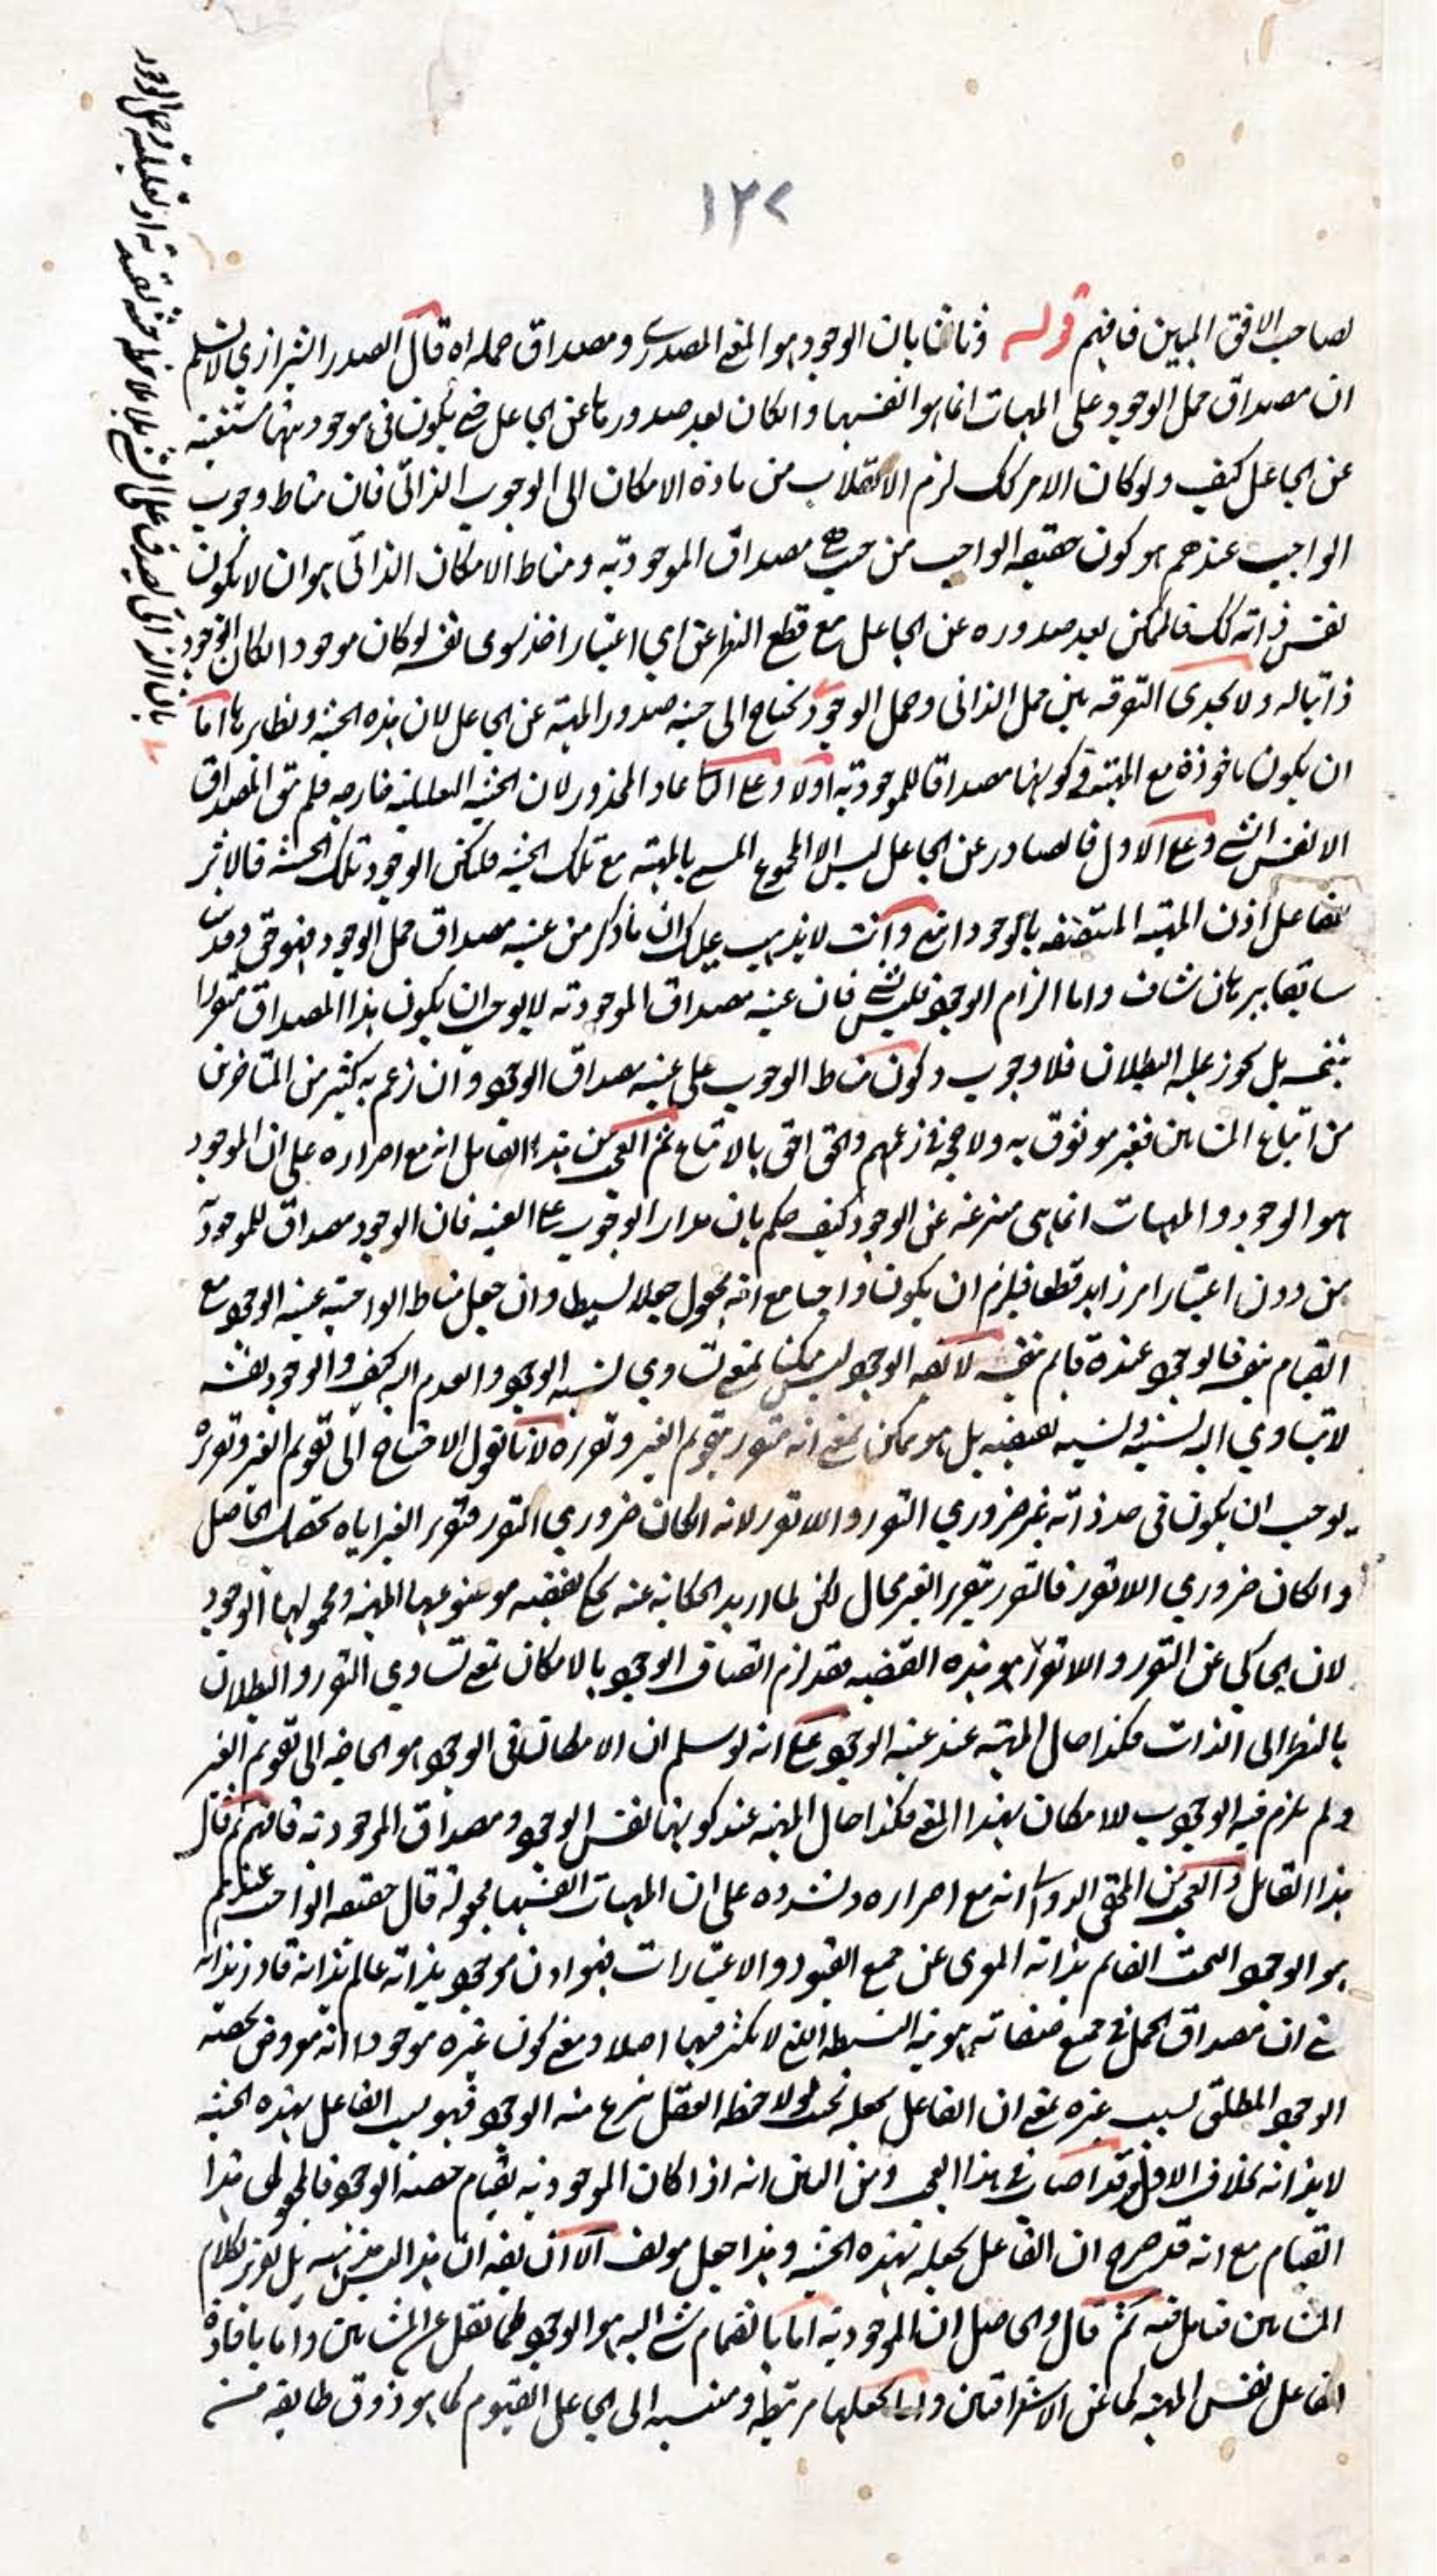 ١٢٧
لصاحب الافق المبين فافهم قوله وثانيا بان الوجود هو المعنى المصدري ومصداق حمله اه قال الصدر الشيرازي لا نسلم
ان مصداق حمل الوجود على المهيات انما هو انفسها وان كان بعد صدورها عن الجاعل حتى يكون في موجوديتها مستغنية
عن الجاعل كيف ولو كان الامر كك لزم الانقلاب من مادة الامكان الى الوجوب الذاتي فان مناط وجوب
الواجب عندهم هو كون حقيقة الواجب من حيث هي مصداق الموجودية ومناط الامكان الذاتي هو ان لا يكون
نفس ذاته كك فالممكن بعد صدوره عن الجاعل مع قطع النظر عن اي اعتبار اخذ سوى نفسه لو كان موجودا لكان الوجود
ذاتيا له ولا يجدي التفرقة بين حمل الذاتي وحمل الوجود يحتاج الى حيثية صدور المهية عن الجاعل لان هذه الحيثية ونظايرها اما
ان يكون ماخوذة مع المهية في كونها مصداقا للموجودية اولا وعلى الثاني عاد المحذور لان الحيثية التعليلية خارجه فلم يبق المصداق
الا نفس الشي وعلى الاول فالصادر عن الجاعل ليس الا المجموع المسمى بالمهية مع تلك الحيثية فلتكن الوجود تلك الحيثية فالاثر
للفاعل اذن المهية المتصفة بالوجود انتهى وانت لا يذهب عليك ان ما ذكر من عينية مصداق حمل الوجود فهو حق وقد مر
سابقا ببرهان شاف واما الزام الوجوب فليس بشي فان عينية مصداق الموجودية لا يوجب ان يكون هذا المصداق متقررا
بنفسه بل يجوز عليه البطلان فلا وجوب وكون مناط الوجوب على عينية مصداق الوجود وان زعم به كثير من المتاخرين
من اتباع المشائين فغير موثوق به ولا حجة في زعمهم والحق احق بالاتباع ثم العجب من هذا القائل انه مع اصراره على ان الموجود
هو الوجود والمهيات انما هي منتزعة عن الوجود كيف حكم بان مدار الوجوب على العينية فان الوجود مصداق للموجودية
من دون اعتبار امر زايد قطعا فيلزم ان يكون واجبا مع انه مجعول جعلا بسيطا وان جعل مناط الواجبية عينية الوجود مع
القيام بنفسه فالوجود عنده قايم بنفسه لا يقه الوجود ليس ممكنا بمعنى تساوي نسبة الوجود والعدم اليه كيف والوجود نفسه
لا يتساوي اليه نسبته ونسبة نقيضه بل هو ممكن بمعنى انه متقرر بتقويم الغير وتقرره لانا نقول الاحتياج الى تقويم الغير وتقرره
يوجب ان يكون في حد ذاته غير ضروري التقرر واللاتقرر لانه ان كان ضروري التقرر فتقرير الغير اياه تحصيل الحاصل
وان كان ضروري اللاتقرر فالتقرر بتقرير الغير محال لكن لما اريد الحكاية عنه يحكي بقضية موضوعها المهية ومحمولها الوجود
لان الحاكي عن التقرر واللاتقرر هو هذه القضية فقد لزم اتصاف الوجود بالامكان بمعنى تساوي التقرر والبطلان
بالنظر الى الذات فكذا حال المهية عند عينية الوجود على انه لو سلم ان الامكان في الوجود هو الحاجة الى تقويم الغير
ولم يلزم فيه الوجوب للامكان بهذا المعنى فكذا حال المهية عند كونها نفس الوجود ومصداق الموجودية فافهم ثم قال
هذا القائل والعجب من المحقق الدواني انه مع اصراره وتشدده على ان المهيات انفسها مجعولة قال حقيقة الواجب عندهم
هو الوجود البحت القايم بذاته المعرى عن جميع القيود والاعتبارات فهو اذن موجود بذاته عالم بذاته قادر بذاته
في ان مصداق الحمل في جميع صفاته هويته البسيطة التي لا تكثر فيها اصلا ومعنى كون غيره موجودا انه معروض لحصة
الوجود المطلق بسبب غيره بمعنى ان الفاعل يجعله بحيث لو لاحظه العقل ينزع منه الوجود فهو بسبب الفاعل بهذه الحيثية
لا بذاته بخلاف الاول وقد اصاب في هذا العجب ومن البين انه اذا كان الموجودية بقيام حصة الوجود فالمجعول هذا
القيام مع انه قد صرح ان الفاعل يجعله بهذه الحيثية وهذا جعل مؤلف الا ان يقه ان هذا ليس مذهبه بل تقرير لكلام
المشائين فتامل فيه ثم قال والحاصل ان الموجودية اما بانضمام شي اليه هو الوجود كما نقل عن المشائين واما بافادة
الفاعل نفس المهية كما عن الاشراقيين واما بجعلها مرتبطة ومنتسبة الى الجاعل القيوم كما هو ذوق طايفة من
بان الذاتي يصدق على الشي بلا ملاحظة حيثية تقييدية او تعليلية وحمل الوجود